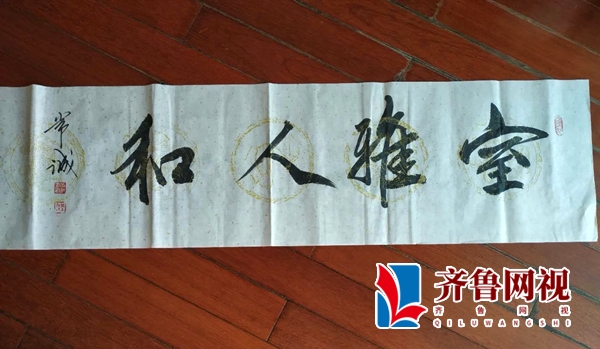 室雅人和
常诚
齐鲁网视
齐鲁网视
QILUWANGSHI